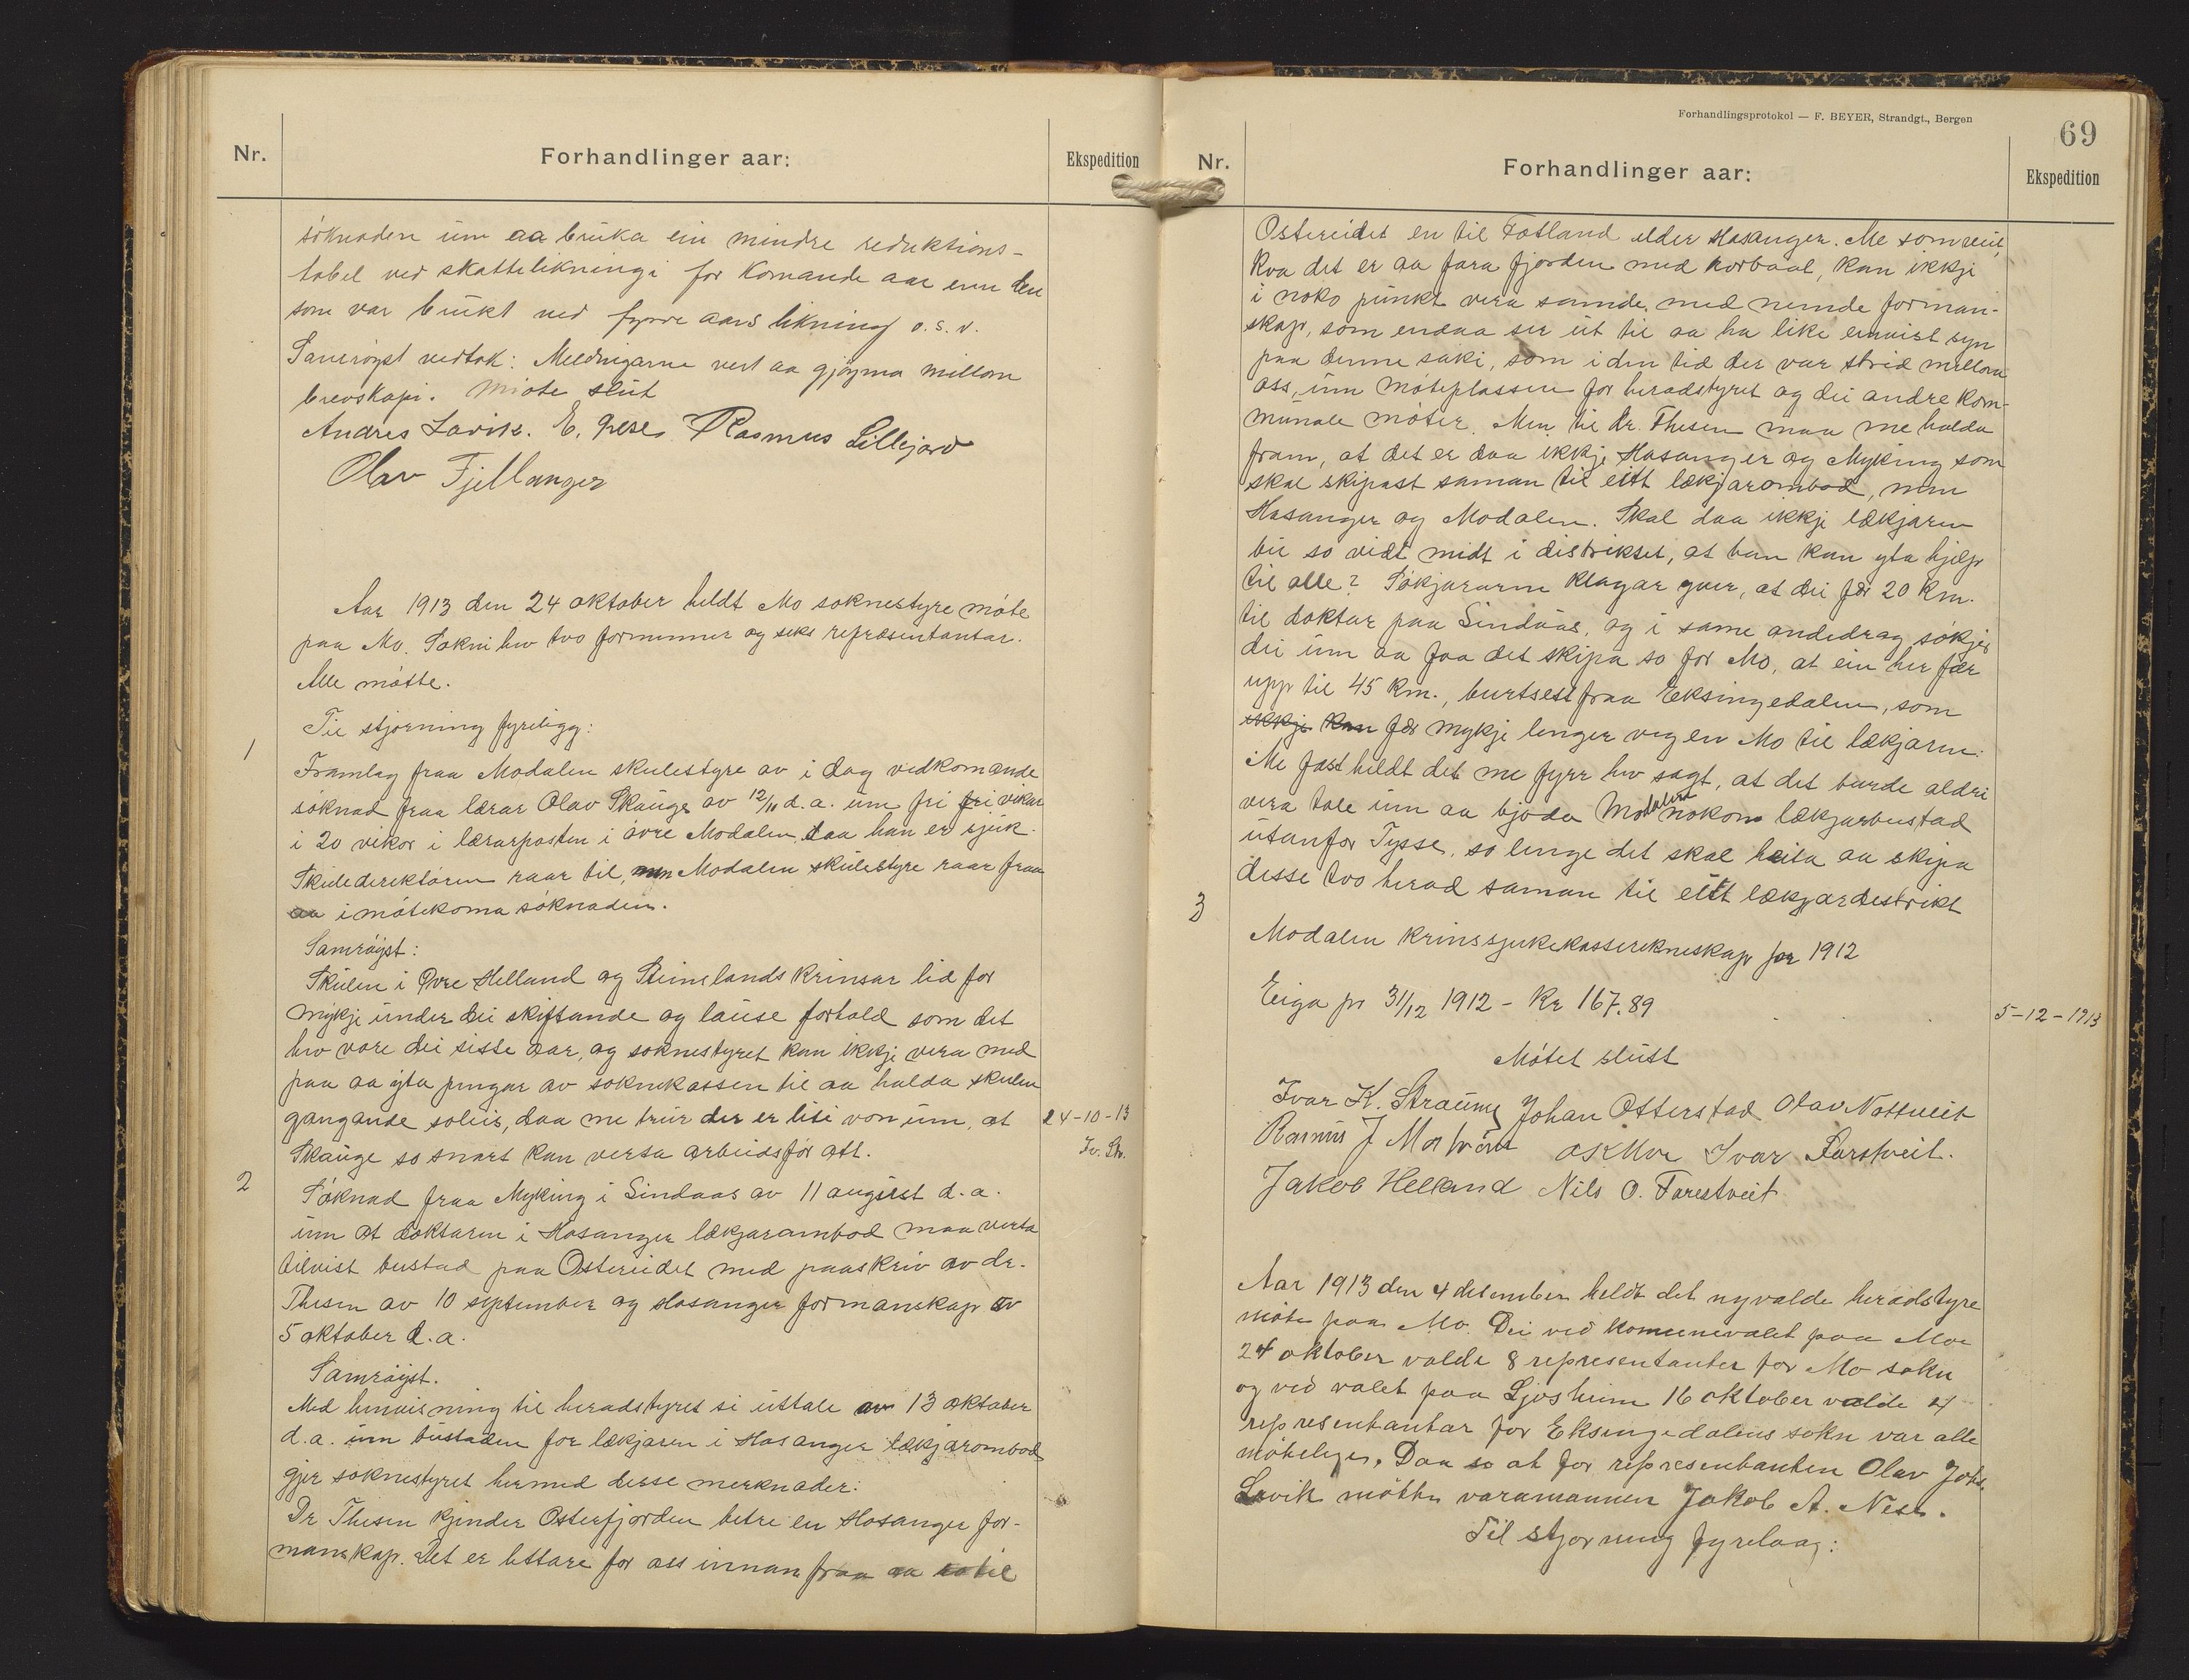 Nr.
Forhandlinger aar:
Ekspedition
söknaden um aa bruka ein mindre reduktions-
tabel ved skattelikningi for komande aar enn den
som var brukt ved fyrre aars likning o.s.v.
Samröyst vedtak: Meldingarne vert aa gjöyma millom
brevskapi. Möte slut
Andres Lavik. E. Nese Rasmus Lillejord
Olav Fjellanger
Aar 1913 den 24 oktober heldt Mo soknestyre möte
paa Mo. Sokni hev tvo formenner og seks repræsentantar.
Alle mötte.
Til stjorning fyreligg:
1
Framlag fraa Modalen skulestyre av i dag vedkomande
söknad fraa lærar Olav Skauge av 12/10 d.a. um fri vikar
i 20 vikor i lærarposten i övre Modalen, daa han er sjuk.
Skuledirektören raar til, men Modalen skulestyre raar fraa
aa imötekoma söknaden.
Samröyst:
Skulen i Övre Helland og Steinslands krinsar lid for
mykje under dei skiftande og lause forhold som det
hev vore dei siste aar, og soknestyret kan ikkje vera med
paa aa yta pengar av soknekassen til aa halda skulen
gangande soleis, daa me trur der er liti von um, at
24-10-13
Skauge so snart kan verta arbeidsför att.
Iv. St.
2
Söknad fraa Myking i Lindaas av 11 august d.a.
um at doktaren i Hosanger lækjarombod maa verta
tilvist bustad paa Ostereidet med paaskriv av dr.
Thesen av 10 september og Hosanger formanskap av
5 oktober d.a.
Samröyst.
Med henvisning til heradstyret si uttale av 13 oktober
d.a. um bustaden for lækjaren i Hosanger lækjarombod
gjer soknestyret hermed desse merknader:
Dr Thesen kjender Osterfjorden betre en Hosanger for-
manskap. Det er lettare for oss innan fraa aa ro til
Forhandlingsprotokol — F. BEYER, Strandgt., Bergen
69
Nr.
Forhandlinger aar:
Ekspedition
Ostereidet en til Fotland elder Hosanger. Me som veit,
kva det er aa fara fjorden med norbaal, kan ikkje
i noko punkt vera samde med nemde forman-
skap, som endaa ser ut til aa ha like einvist syn
paa denne saki, som i den tid der var strid mellom
oss, um möteplassen for heradstyret og dei andre kom-
munale möter. Men til Dr. Thesen maa me halda
fram, at det er daa ikkje Hosanger og Myking som
skal skipast saman til eitt lækjarombod, men
Hosanger og Modalen. Skal daa ikkje lækjaren
bu so vidt midt i distriktet, at han kan yta hjelp
til alle? Sökjararne klagar yver, at dei fær 20 km.
til doktar paa Lindaas, og i same andedrag sökjer
dei um aa faa det skipa so for Mo, at ein her fær
upp til 45 km., burtsett fraa Eksingedalen, som
ikkje kan fær mykje lenger veg en Mo til lækjaren.
Me fastheldt det me fyrr hev sagt, at det burde aldri
vera tale um aa bjoda Modalen nokon lækjarbustad
utanfor Tysse, so lenge det skal heita aa skipa
desse tvo herad saman til eitt lækjardistrikt
3
Modalen krinssjukekasserekneskap for 1912
Eiga pr 31/12 1912 - Kr 167.89
5-12-1913
Mötet slutt
Ivar K. Straume Johan Otterstad Olav Nottveit
Rasmus J Mostraum O K Moe Ivar Farestveit.
Jakob Helland Nils O. Farestveit
Aar 1913 den 4 desember heldt det nyvalde heradstyre
möte paa Mo. Dei ved komunevalet paa Moe
24 oktober valde 8 representanter for Mo sokn
og ved valet paa Ljosheim 16 oktober valde 4
representantar for Eksingedalens sokn var alle
mötelege. Daa so at for representanten Olav Johs.
Lavik mötte varamannen Jakob A. Nese.
Til stjorning fyrelaag: